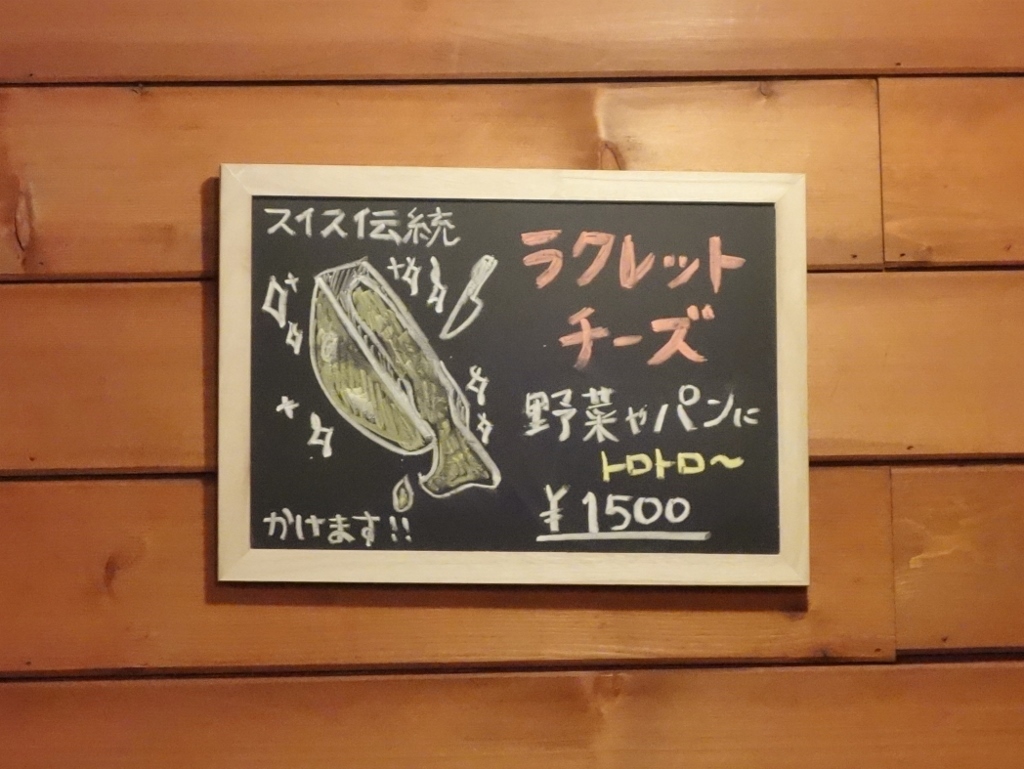 スイス伝統
ラクレット
チーズ
野菜やパンに
トロトロ～
¥1500
かけます!!